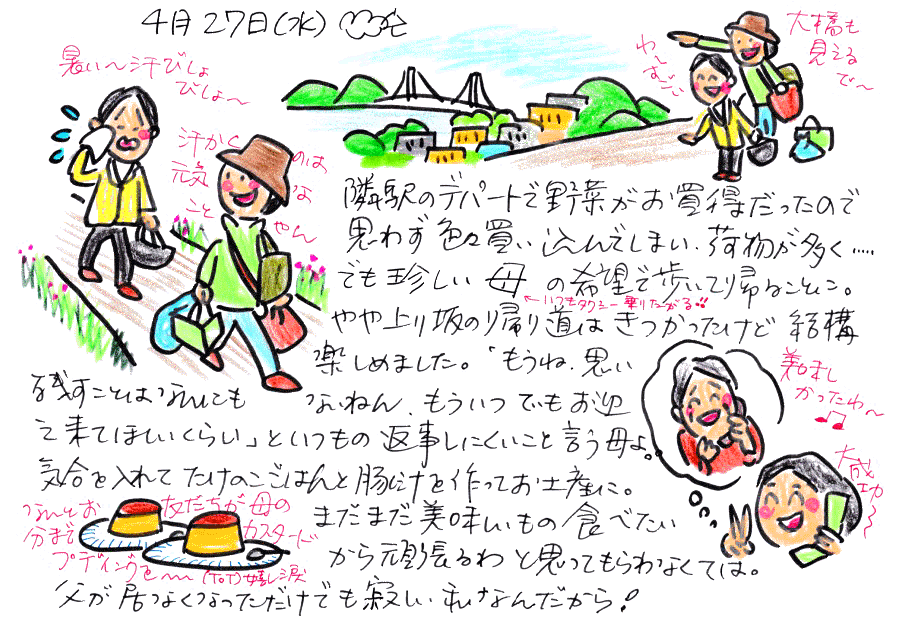 4月27日(水)
暑い〜汗びしょ
びしょ〜
汗かくのは
元気な
ことやん
わ〜
すごい
大橋も
見える
で〜
隣駅のデパートで野菜がお買得だったので
思わず色々買い込んでしまい、荷物が多く……
でも珍しい母の希望で歩いて帰ることに。
←いつもタクシー乗りたがる!!
やや上り坂の帰り道はきつかったけど結構
楽しめました。「もうね、思い
残すことはなんにもないねん、もういつでもお迎
えに来てほしいくらい」といつもの返事しにくいこと言う母よ。
気合を入れてたけのごはんと豚汁を作ってお土産に。
まだまだ美味しいもの食べたい
から頑張るわと思ってもらわなくては。
父が居なくなっただけでも寂しい私なんだから!
美味し
かったわ〜
大成功〜
なんとお友だちが母の
分までカスタード
プディングを〜 (ToT)嬉し涙